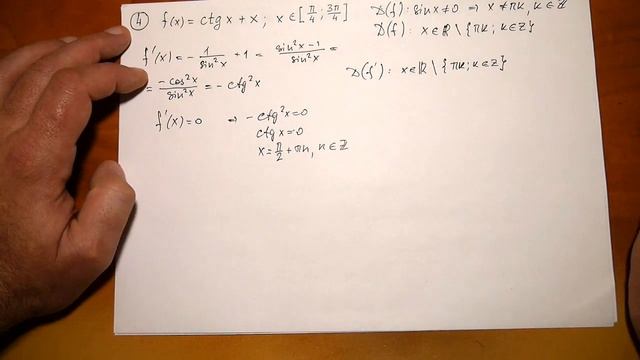 ④ f(x) = ctg x + x ; x ∈ [π/4 ; 3π/4]
D(f): sin x ≠ 0 ⇒ x ≠ πk, k ∈ Z
D(f): x ∈ R \ {πk ; k ∈ Z}
f'(x) = - 1/sin²x + 1 = (sin²x - 1)/sin²x =
D(f'): x ∈ R \ {πk ; k ∈ Z}
= -cos²x/sin²x = - ctg²x
f'(x) = 0 ⇒ - ctg²x = 0
ctg x = 0
x = π/2 + πk, k ∈ Z